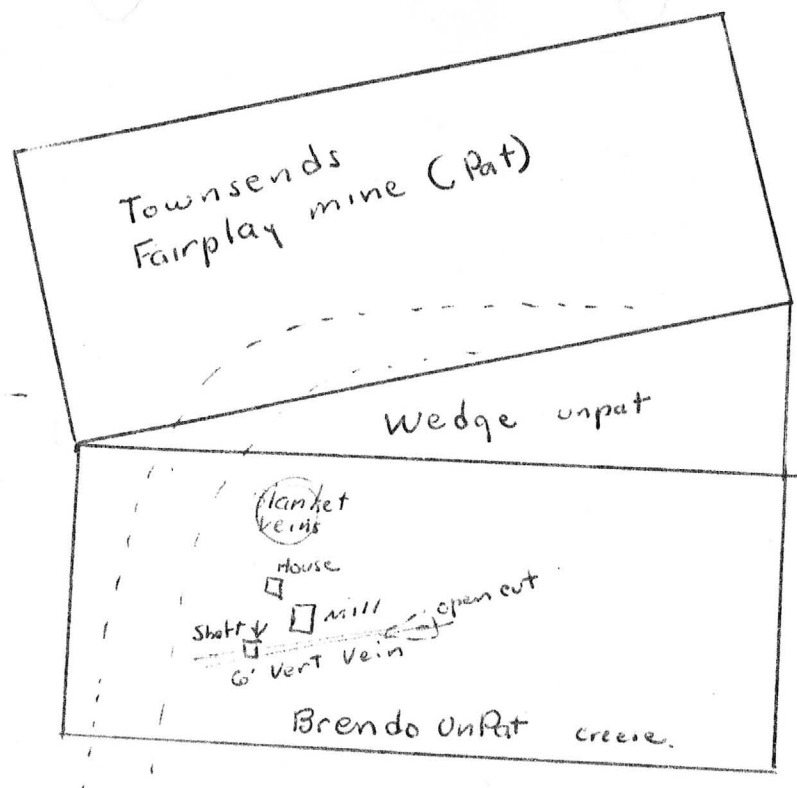 Townsends
Fairplay mine (Pat)
Wedge unpat
blanket
veins
House
Mill
open cut
Shaft
6' Vert Vein
Brendo UnPat